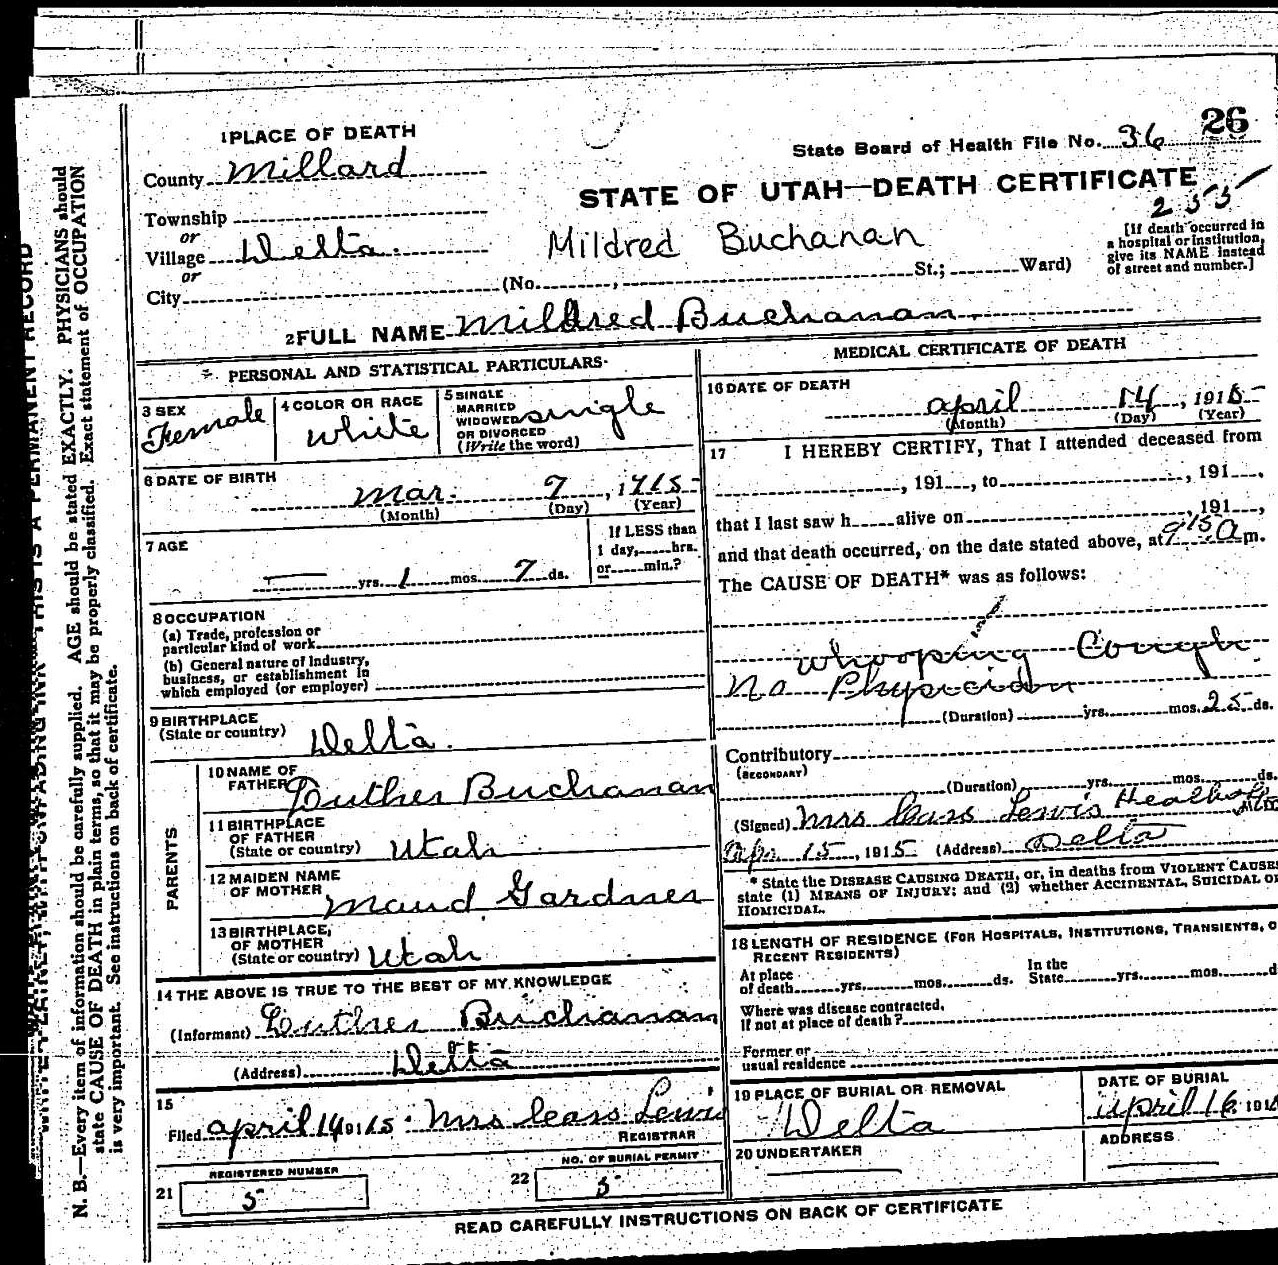 26
1 PLACE OF DEATH
State Board of Health File No. 36
County Millard
STATE OF UTAH—DEATH CERTIFICATE
255
Township
or
Village Delta.
or
City
Mildred Buchanan
(No. , St.; Ward)
[If death occurred in
a hospital or institution,
give its NAME instead
of street and number.]
2 FULL NAME Mildred Buchanan
PERSONAL AND STATISTICAL PARTICULARS
3 SEX
Female
4 COLOR OR RACE
White
5 SINGLE
MARRIED
WIDOWED
OR DIVORCED
(Write the word)
single
6 DATE OF BIRTH
Mar. 7, 1915
(Month) (Day) (Year)
7 AGE
yrs. 1 mos. 7 ds.
If LESS than
1 day, hrs.
or min.?
8 OCCUPATION
(a) Trade, profession or
particular kind of work
(b) General nature of Industry,
business, or establishment in
which employed (or employer)
9 BIRTHPLACE
(State or country) Delta.
PARENTS
10 NAME OF
FATHER Luther Buchanan
11 BIRTHPLACE
OF FATHER
(State or country) Utah
12 MAIDEN NAME
OF MOTHER Maud Gardner
13 BIRTHPLACE,
OF MOTHER
(State or country) Utah
14 THE ABOVE IS TRUE TO THE BEST OF MY KNOWLEDGE
(Informant) Luther Buchanan
(Address) Delta
15
Filed April 14 1915. Mrs Lewis
REGISTRAR
REGISTERED NUMBER
21 5
NO. OF BURIAL PERMIT
22 5
MEDICAL CERTIFICATE OF DEATH
16 DATE OF DEATH
April 14, 1915
(Month) (Day) (Year)
17 I HEREBY CERTIFY, That I attended deceased from
, 191 , to , 191 ,
that I last saw h alive on , 191 ,
and that death occurred, on the date stated above, at 9 15 a m.
The CAUSE OF DEATH* was as follows:
Whooping Cough
No Physician
(Duration) yrs. mos. 25 ds.
Contributory
(SECONDARY)
(Duration) yrs. mos. ds.
(Signed) Mrs Lewis
Apr. 15, 1915 (Address) Delta
* State the DISEASE CAUSING DEATH, or, in deaths from VIOLENT CAUSES
state (1) MEANS OF INJURY; and (2) whether ACCIDENTAL, SUICIDAL OR
HOMICIDAL.
18 LENGTH OF RESIDENCE (FOR HOSPITALS, INSTITUTIONS, TRANSIENTS, O
RECENT RESIDENTS)
At place
of death yrs. mos. ds.
In the
State yrs. mos. d
Where was disease contracted,
If not at place of death?
Former or
usual residence
19 PLACE OF BURIAL OR REMOVAL
Delta
DATE OF BURIAL
April 16 191
20 UNDERTAKER
ADDRESS
READ CAREFULLY INSTRUCTIONS ON BACK OF CERTIFICATE
N. B.—Every item of information should be carefully supplied. AGE should be stated EXACTLY. PHYSICIANS should
state CAUSE OF DEATH in plain terms, so that it may be properly classified. Exact statement of OCCUPATION
is very important. See instructions on back of certificate.
THIS IS A PERMANENT RECORD